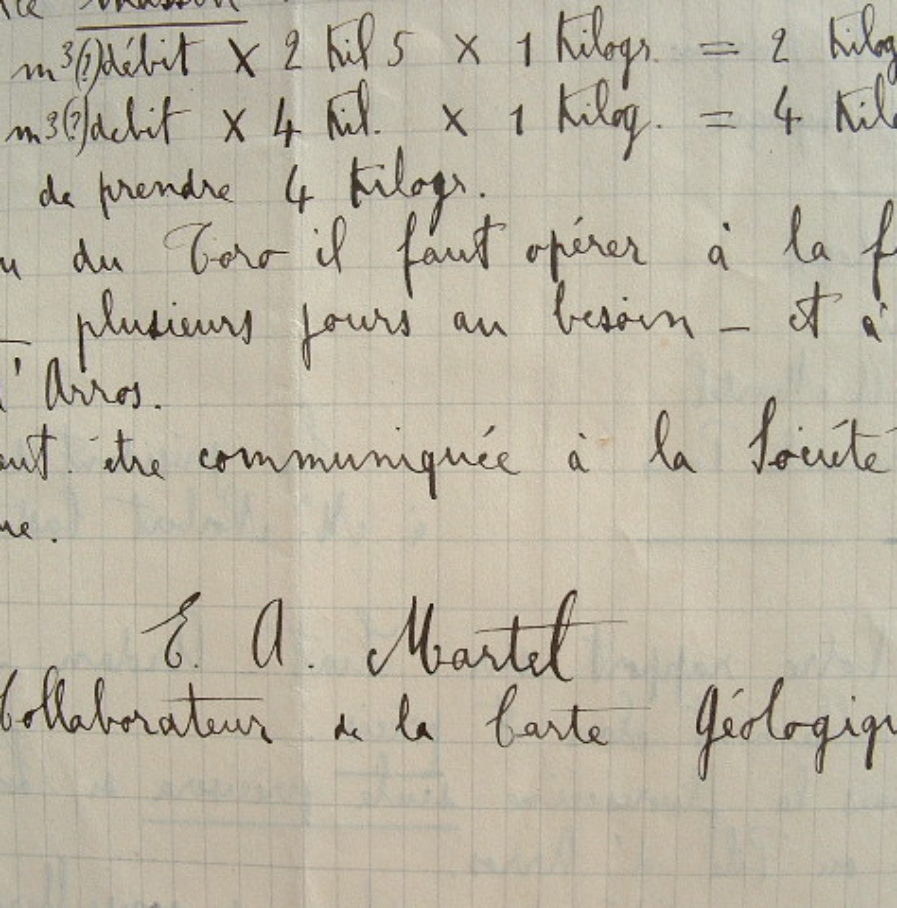 m³(?)débit × 2 Kil 5 × 1 Kilogr. = 2 Kilog
m³(?)debit × 4 Kil. × 1 Kilog. = 4 Kilo
de prendre 4 Kilogr.
u du Toro il faut opérer à la f
— plusieurs jours au besoin — et à
l'Arros.
aut être communiquée à la Société
ue.
E. A. Martel
Collaborateur de la Carte Géologiqu